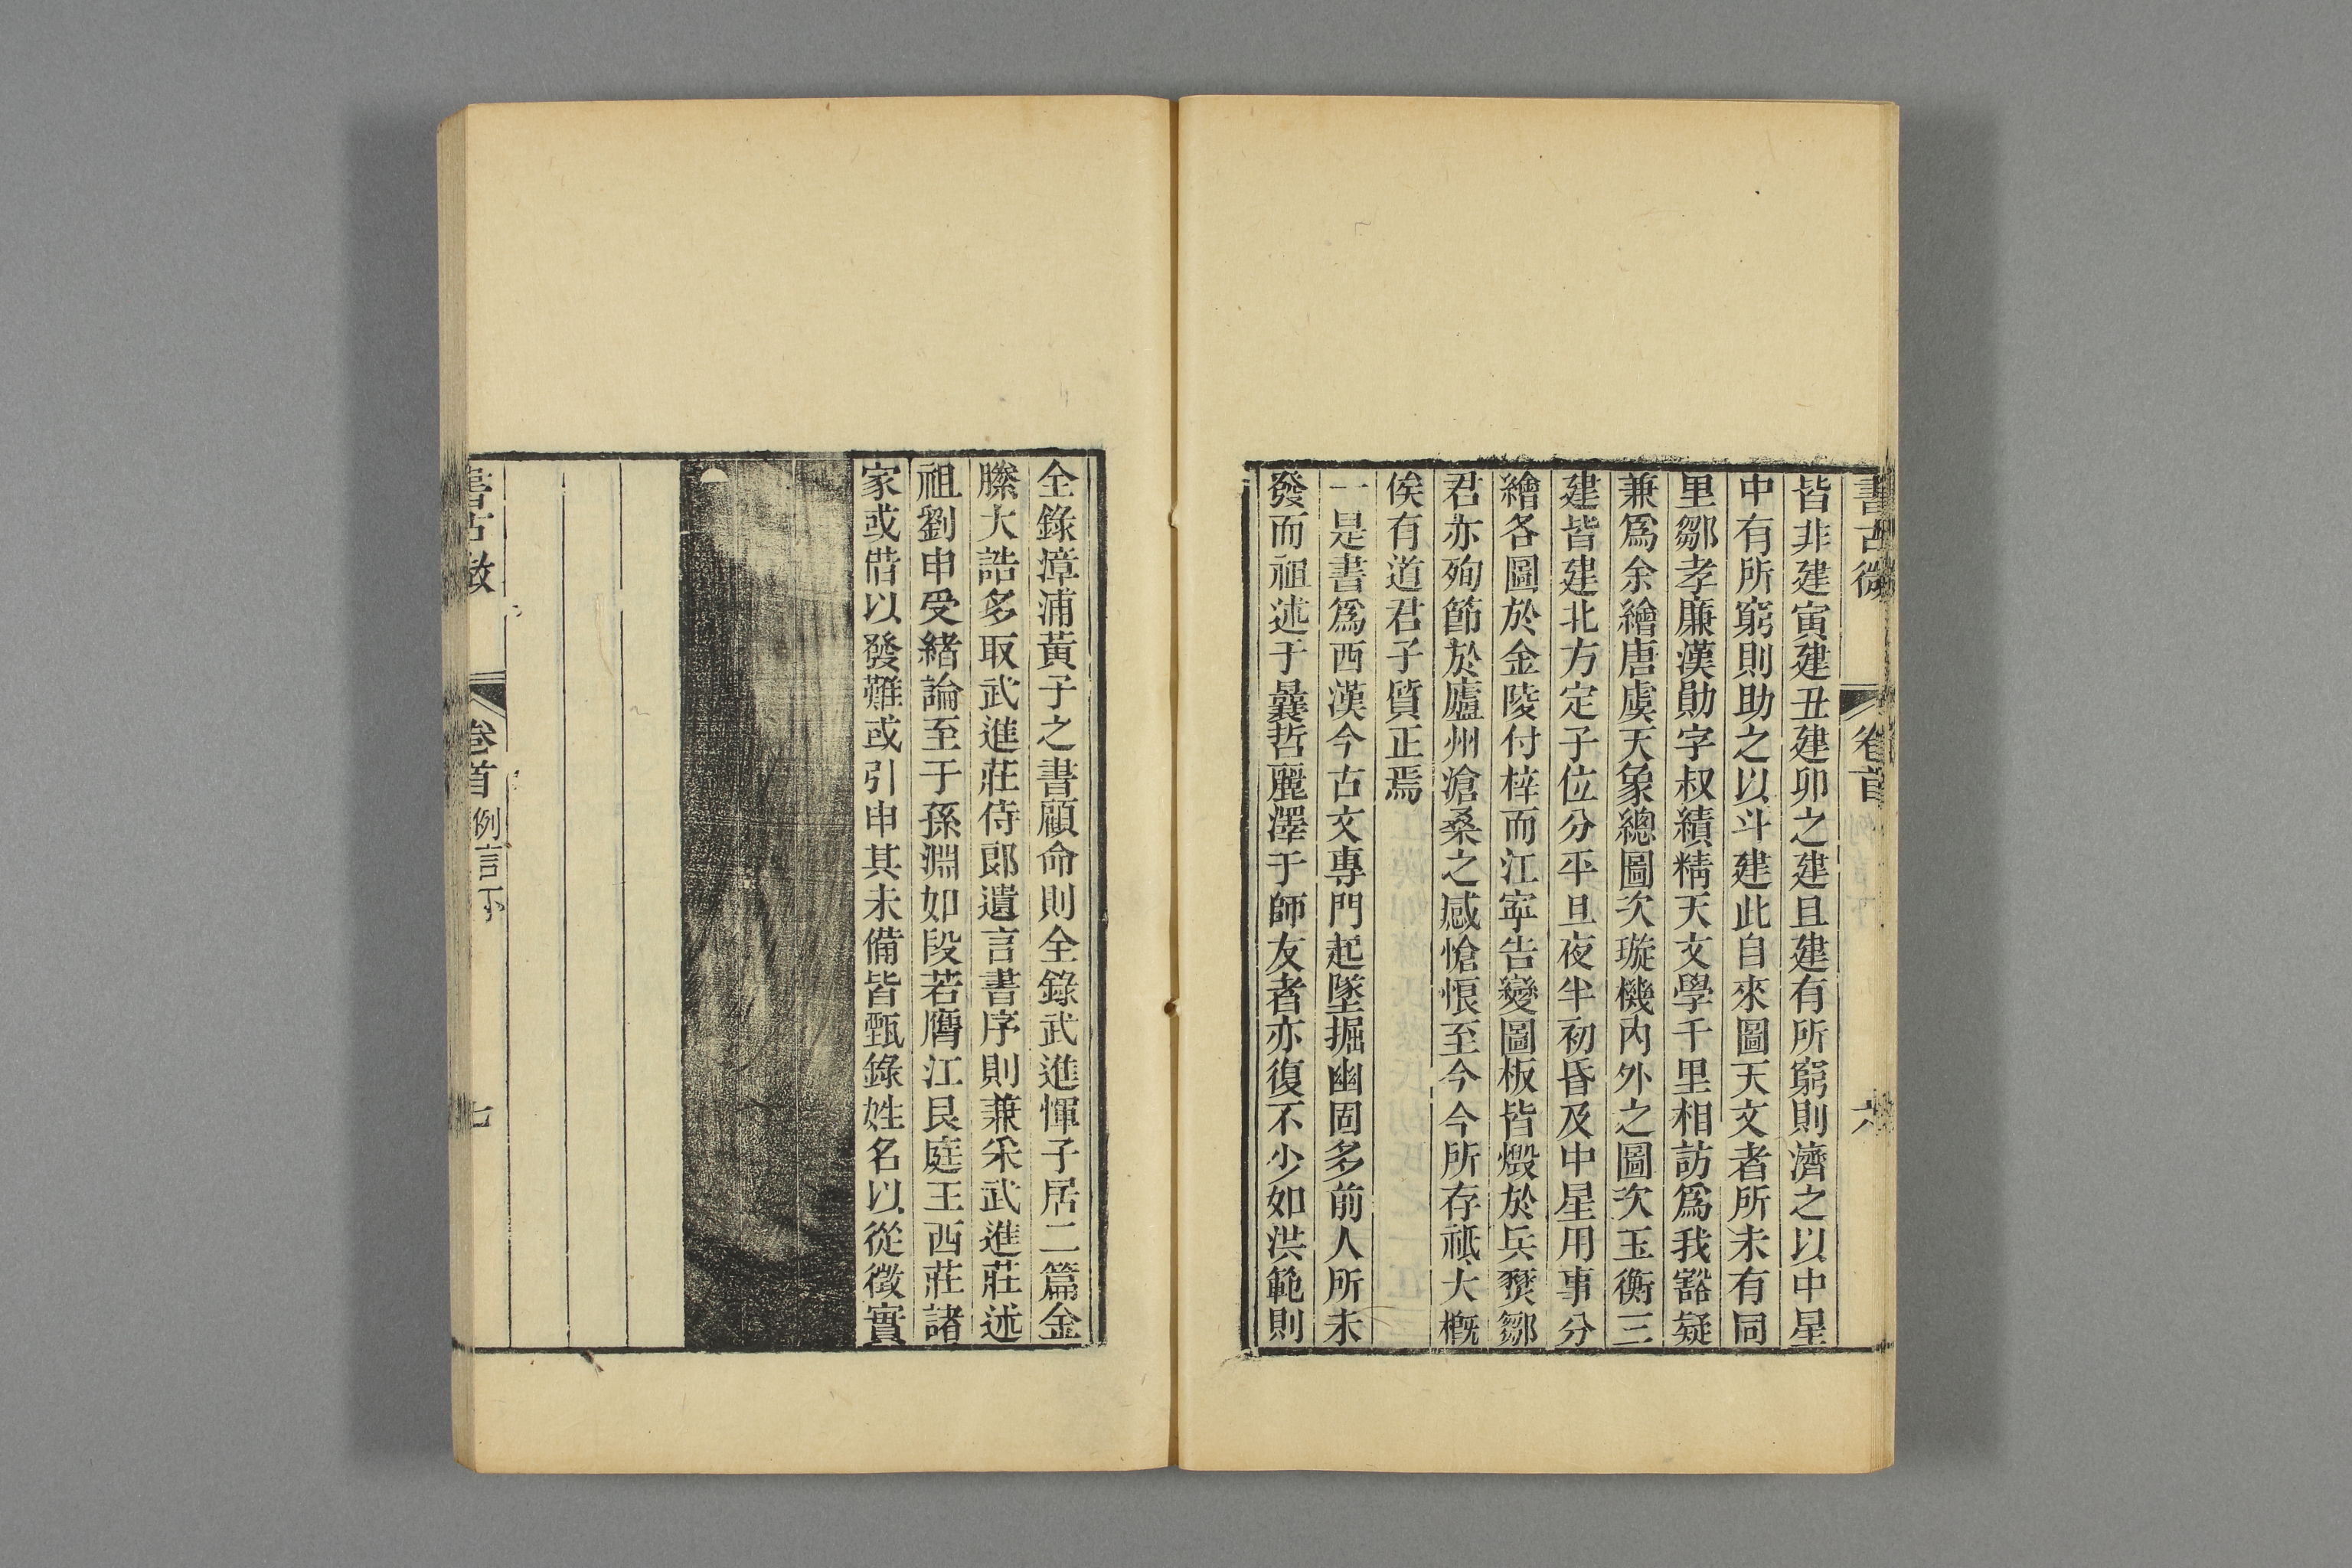 書古微 卷首 六
皆非建寅建丑建卯之建且建有所窮則濟之以中星
中有所窮則助之以斗建此自來圖天文者所未有同
里鄒孝廉漢勛字叔績精天文學千里相訪爲我豁疑
兼爲余繪唐虞天象總圖次璇機內外之圖次玉衡三
建皆建北方定子位分平旦夜半初昏及中星用事分
繪各圖於金陵付梓而江寜告變圖板皆燬於兵燹鄒
君亦殉節於廬州滄桑之感愴悢至今今所存祗大槪
俟有道君子質正焉
一是書爲西漢今古文專門起墜掘幽固多前人所未
發而祖述于曩哲麗澤于師友者亦復不少如洪範則
全錄漳浦黃子之書顧命則全錄武進惲子居二篇金
縢大誥多取武進莊侍郎遺言書序則兼采武進莊述
祖劉申受緒論至于孫淵如段若膺江艮庭王西莊諸
家或借以發難或引申其未備皆甄錄姓名以從徵實
書古微 卷首 例言下 七